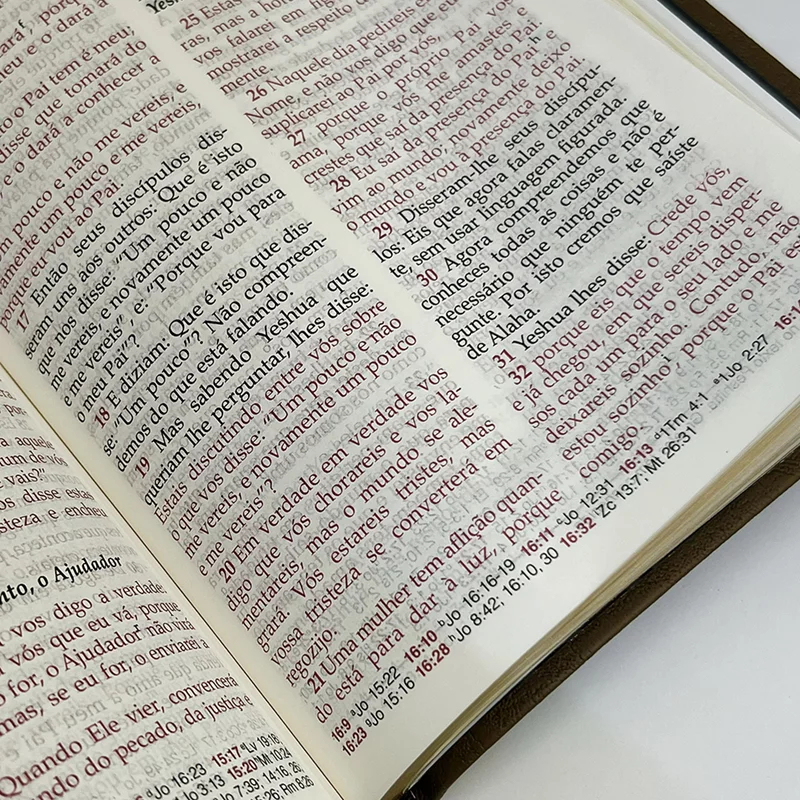 aquele
um de vós
vais?"
os disse estas
steza e encheu
nto, o Ajudador
vos digo a verdade:
vós que eu vá, porque
for, o Ajudador não virá
mas, se eu for, o enviarei a
Quando Ele vier, convencerá
ndo do pecado, da justiça e
Jo 16:23 15:17 Lv 19:18
3:13 15:20 Mt 10:24
Jo 7:39; 14:16, 26;
15:26; Rm 8:26
o Pai tem é meu;
disse que tomará do
e o dará a conhecer a
m pouco e não me vereis, e
amente um pouco e me vereis,
porque eu vou ao Pai.
17 Então seus discípulos dis-
seram uns aos outros: Que é isto
que nos disse: "Um pouco e não
me vereis, e novamente um pouco
e me vereis" e: "Porque vou para
o meu Pai"?
18 E diziam: Que é isto que dis-
se: "Um pouco"? Não compreen-
demos do que está falando.
19 Mas sabendo Yeshua que
queriam lhe perguntar, lhes disse:
Estais discutindo entre vós sobre
o que vos disse: "Um pouco e não
me vereis, e novamente um pouco
e me vereis"?
20 Em verdade em verdade vos
digo que vós chorareis e vos la-
mentareis, mas o mundo se ale-
grará. Vós estareis tristes, mas
vossa tristeza se converterá em
regozijo.
21 Uma mulher tem aflição quan-
do está para dar à luz, porque
25 Estas
ras, mas a ho
vos falarei em fig
mostrarei a respeito d
mente.
26 Naquele dia pedireis e
Nome, e não vos digo que e
suplicarei ao Pai por vós,
27 porque o próprio Pai vo
ama, porque vós me amastes e
crestes que saí da presença do Pai
28 Eu saí da presença do Pai e
vim ao mundo, novamente deixo
o mundo e vou à presença do Pai.
29 Disseram-lhe seus discípu-
los: Eis que agora falas claramen-
te, sem usar linguagem figurada.
30 Agora compreendemos que
conheces todas as coisas e não é
necessário que ninguém te per-
gunte. Por isto cremos que saíste
de Alaha.
31 Yeshua lhes disse: Crede vós,
32 porque eis que o tempo vem
e já chegou, em que sereis disper-
sos cada um para o seu lado e me
deixareis sozinho. Contudo, não
estou sozinho, porque o Pai es
comigo.
16:9 Jo 15:22 16:10 Jo 16:16-19 16:11 Jo 12:31 16:13 1Tm 4:1 1Jo 2:27
16:23 Jo 15:16 16:28 Jo 8:42; 16:10, 30 16:32 Zc 13:7; Mt 26:31